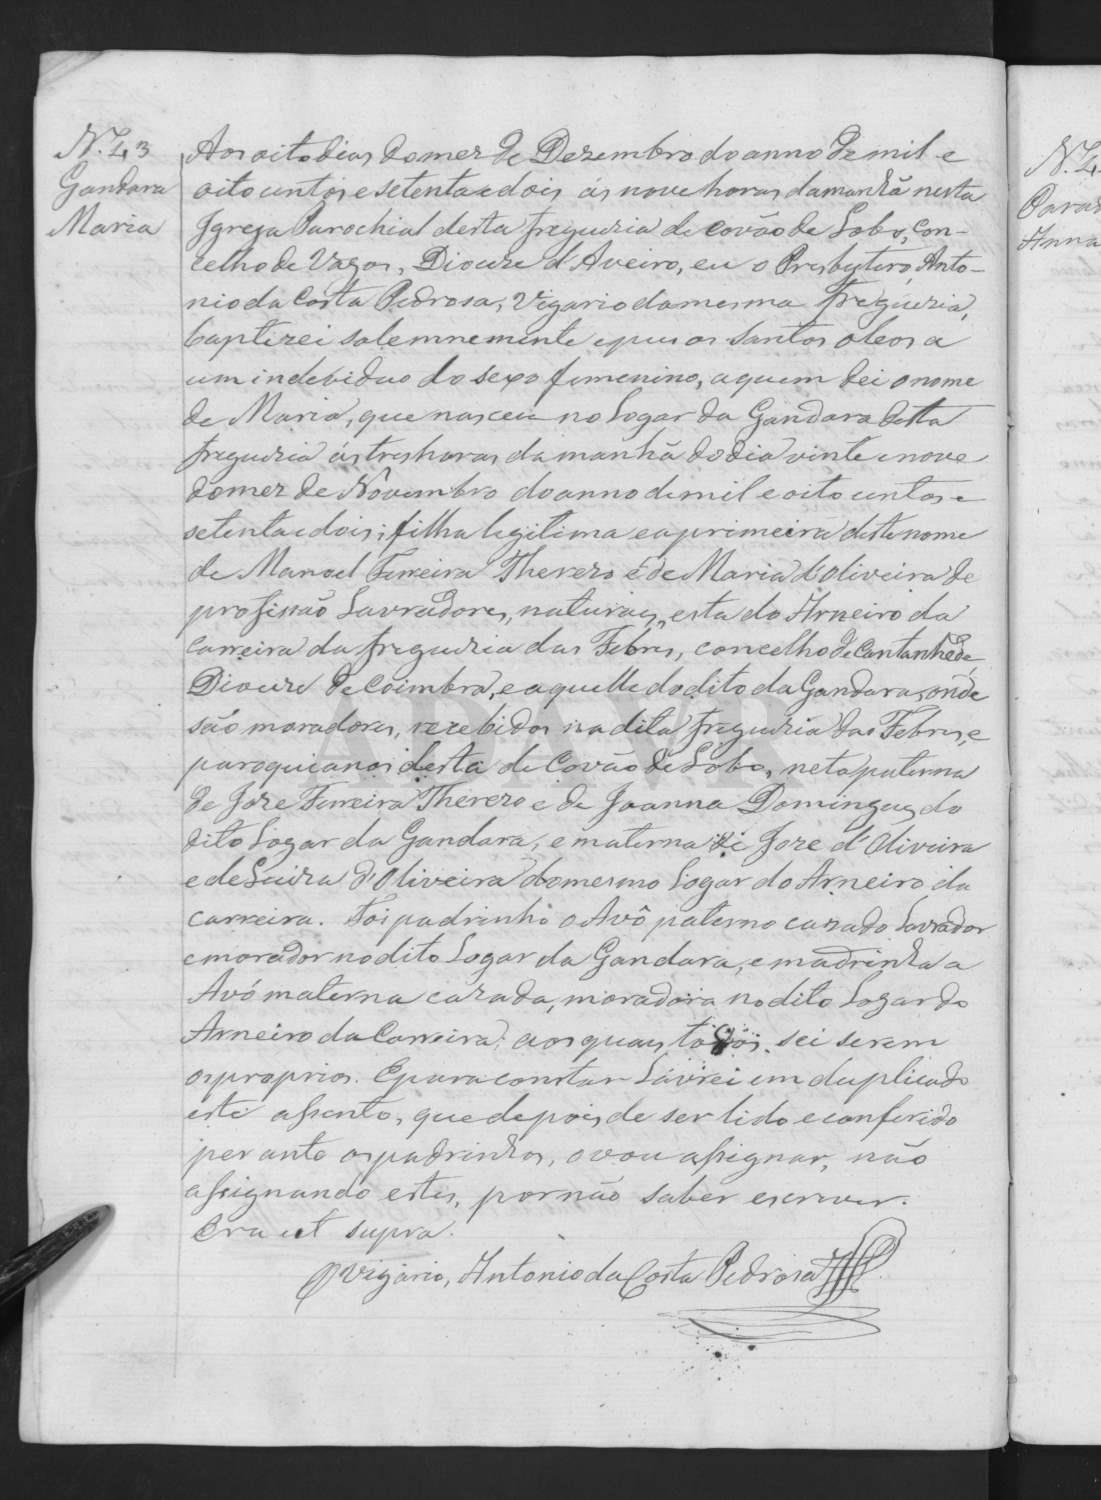 N. 43
Gandara
Maria
Aos oito dias do mez de Dezembro do anno de mil e
oito centos e setenta e dois ás nove horas da manhã nesta
Igreja Parochial desta freguezia de Covão de Lobo, Con-
celho de Vagos, Dioceze d'Aveiro, eu o Presbytero, Anto-
nio da Costa Pedrosa, Vigario da mesma freguezia,
baptizei solemnemente e pus os santos oleos a
um indebiduo do sexo femenino, a quem dei o nome
de Maria, que nasceu no Logar da Gandara desta
freguezia ás tres horas da manhã do dia vinte e nove
do mez de Novembro do anno de mil e oito centos e
setenta e dois; filha legitima e a primeira deste nome
de Manoel Ferreira Therezo e de Maria d'Oliveira de
profissão Lavradores, naturaes, esta do Arneiro da
Carreira da freguezia das Febres, concelho de Cantanhede
Dioceze de Coimbra, e aquelle do dito da Gandara, onde
são moradores, recebidos na dita freguezia das Febres, e
paroquianos desta de Covão de Lobo, neta paterna
de Joze Ferreira Therezo e de Joanna Domingues do
dito Logar da Gandara, e materna de Joze d'Oliveira
e de Luiza d'Oliveira do mesmo Logar do Arneiro da
Carreira. Foi padrinho o Avô paterno cazado Lavrador
e morador no dito Logar da Gandara, e madrinha a
Avó materna cazada, moradora no dito Logar do
Arneiro da Carreira, aos quaes todos sei serem
os proprios. E para constar Lavrei em duplicado
este assento, que depois de ser lido e conferido
per ante os padrinhos, o vou assignar, não
assignando estes, por não saber escrever.
Era ut supra.
O Vigario, Antonio da Costa Pedrosa
N. 4
Anna
ADAVR